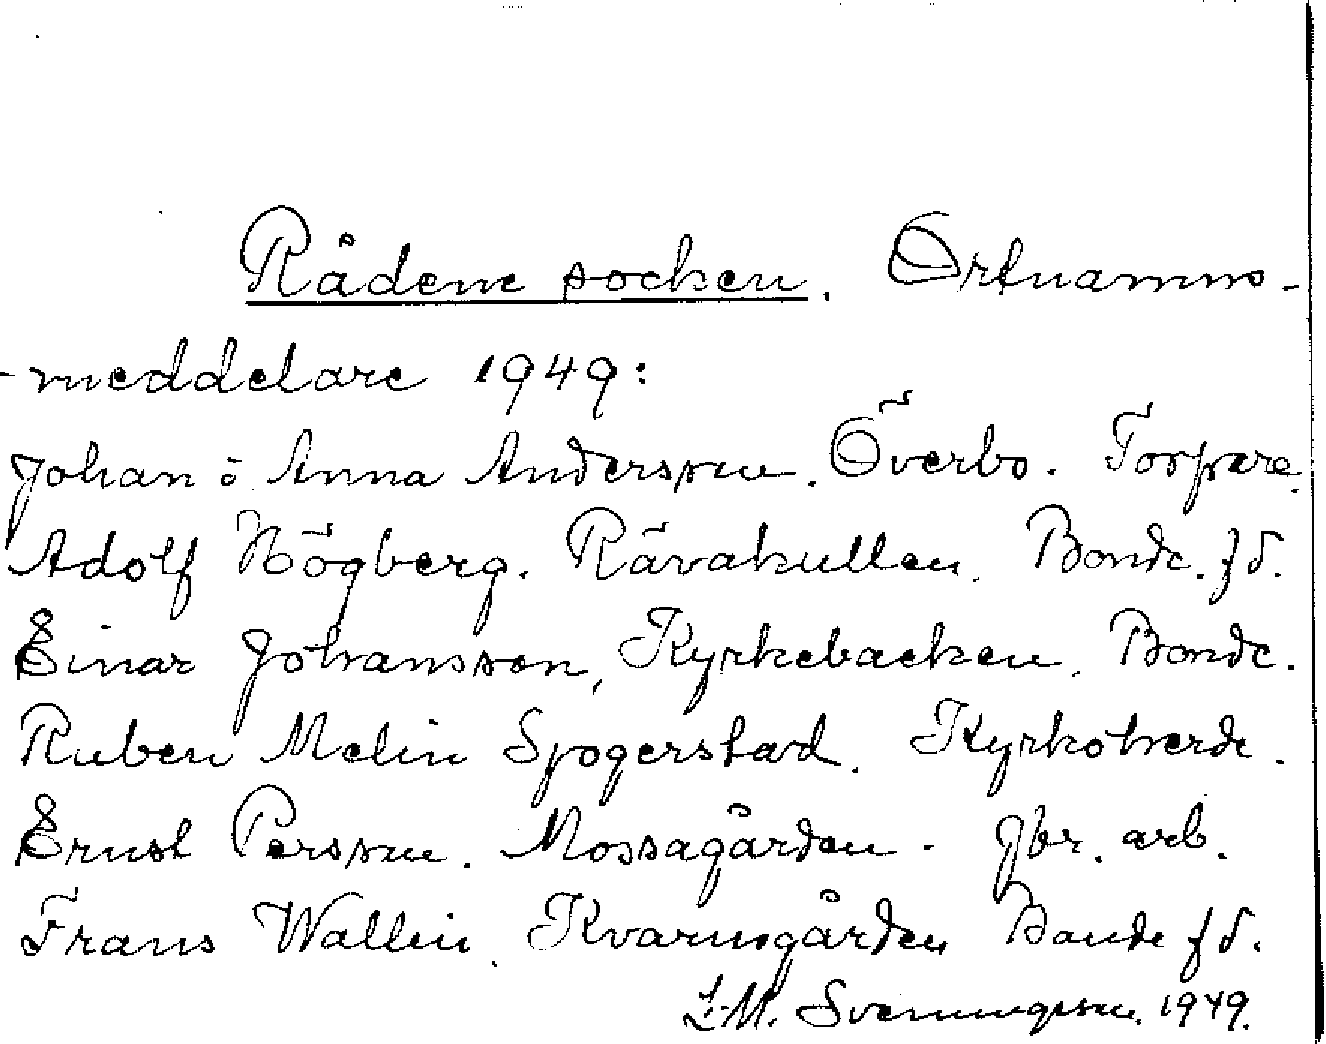 Rådene socken. Ortnamns-
-meddelare 1949:
Johan o Anna Andersson. Överbo. Torpare.
Adolf Högberg. Rävakullen. Bonde. fd.
Einar Johansson, Kyrkebacken. Bonde.
Ruben Melin Spogerstad. Kyrkoherde.
Ernst Persson. Mossagården. Jbr. arb.
Frans Wallin. Kvarnsgården Bonde fd.
L.M. Svenungsson. 1949.